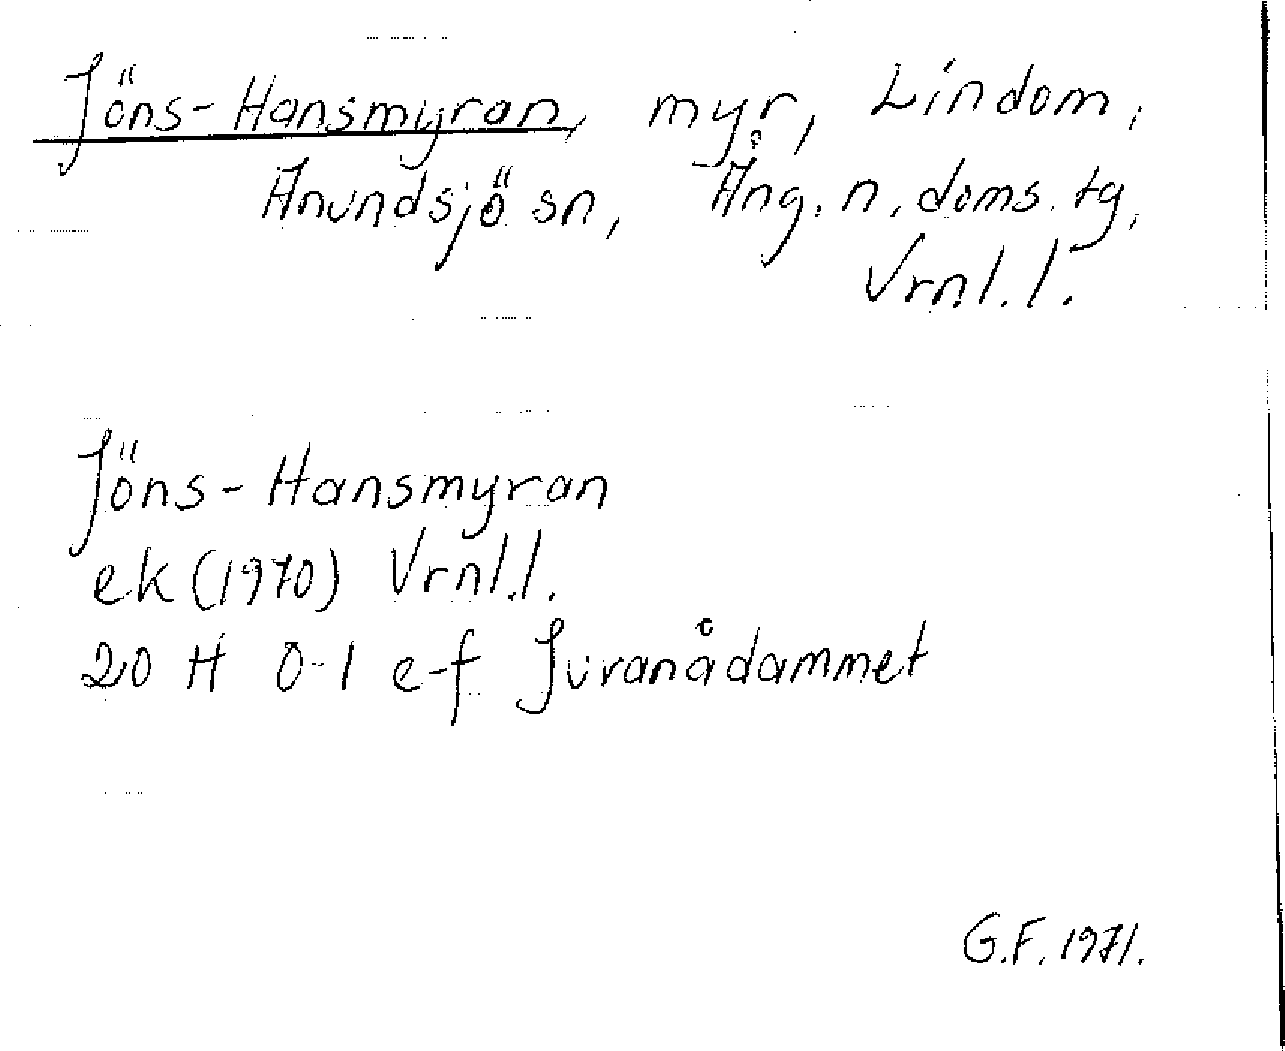 Jöns-Hansmyran, myr, Lindom,
Anundsjö sn, Ång. n. doms. tg,
Vrnl. l.
Jöns-Hansmyran
ek (1970) Vrnl.l.
20 H 0-1 e-f Juvanådammet
G.F. 1971.